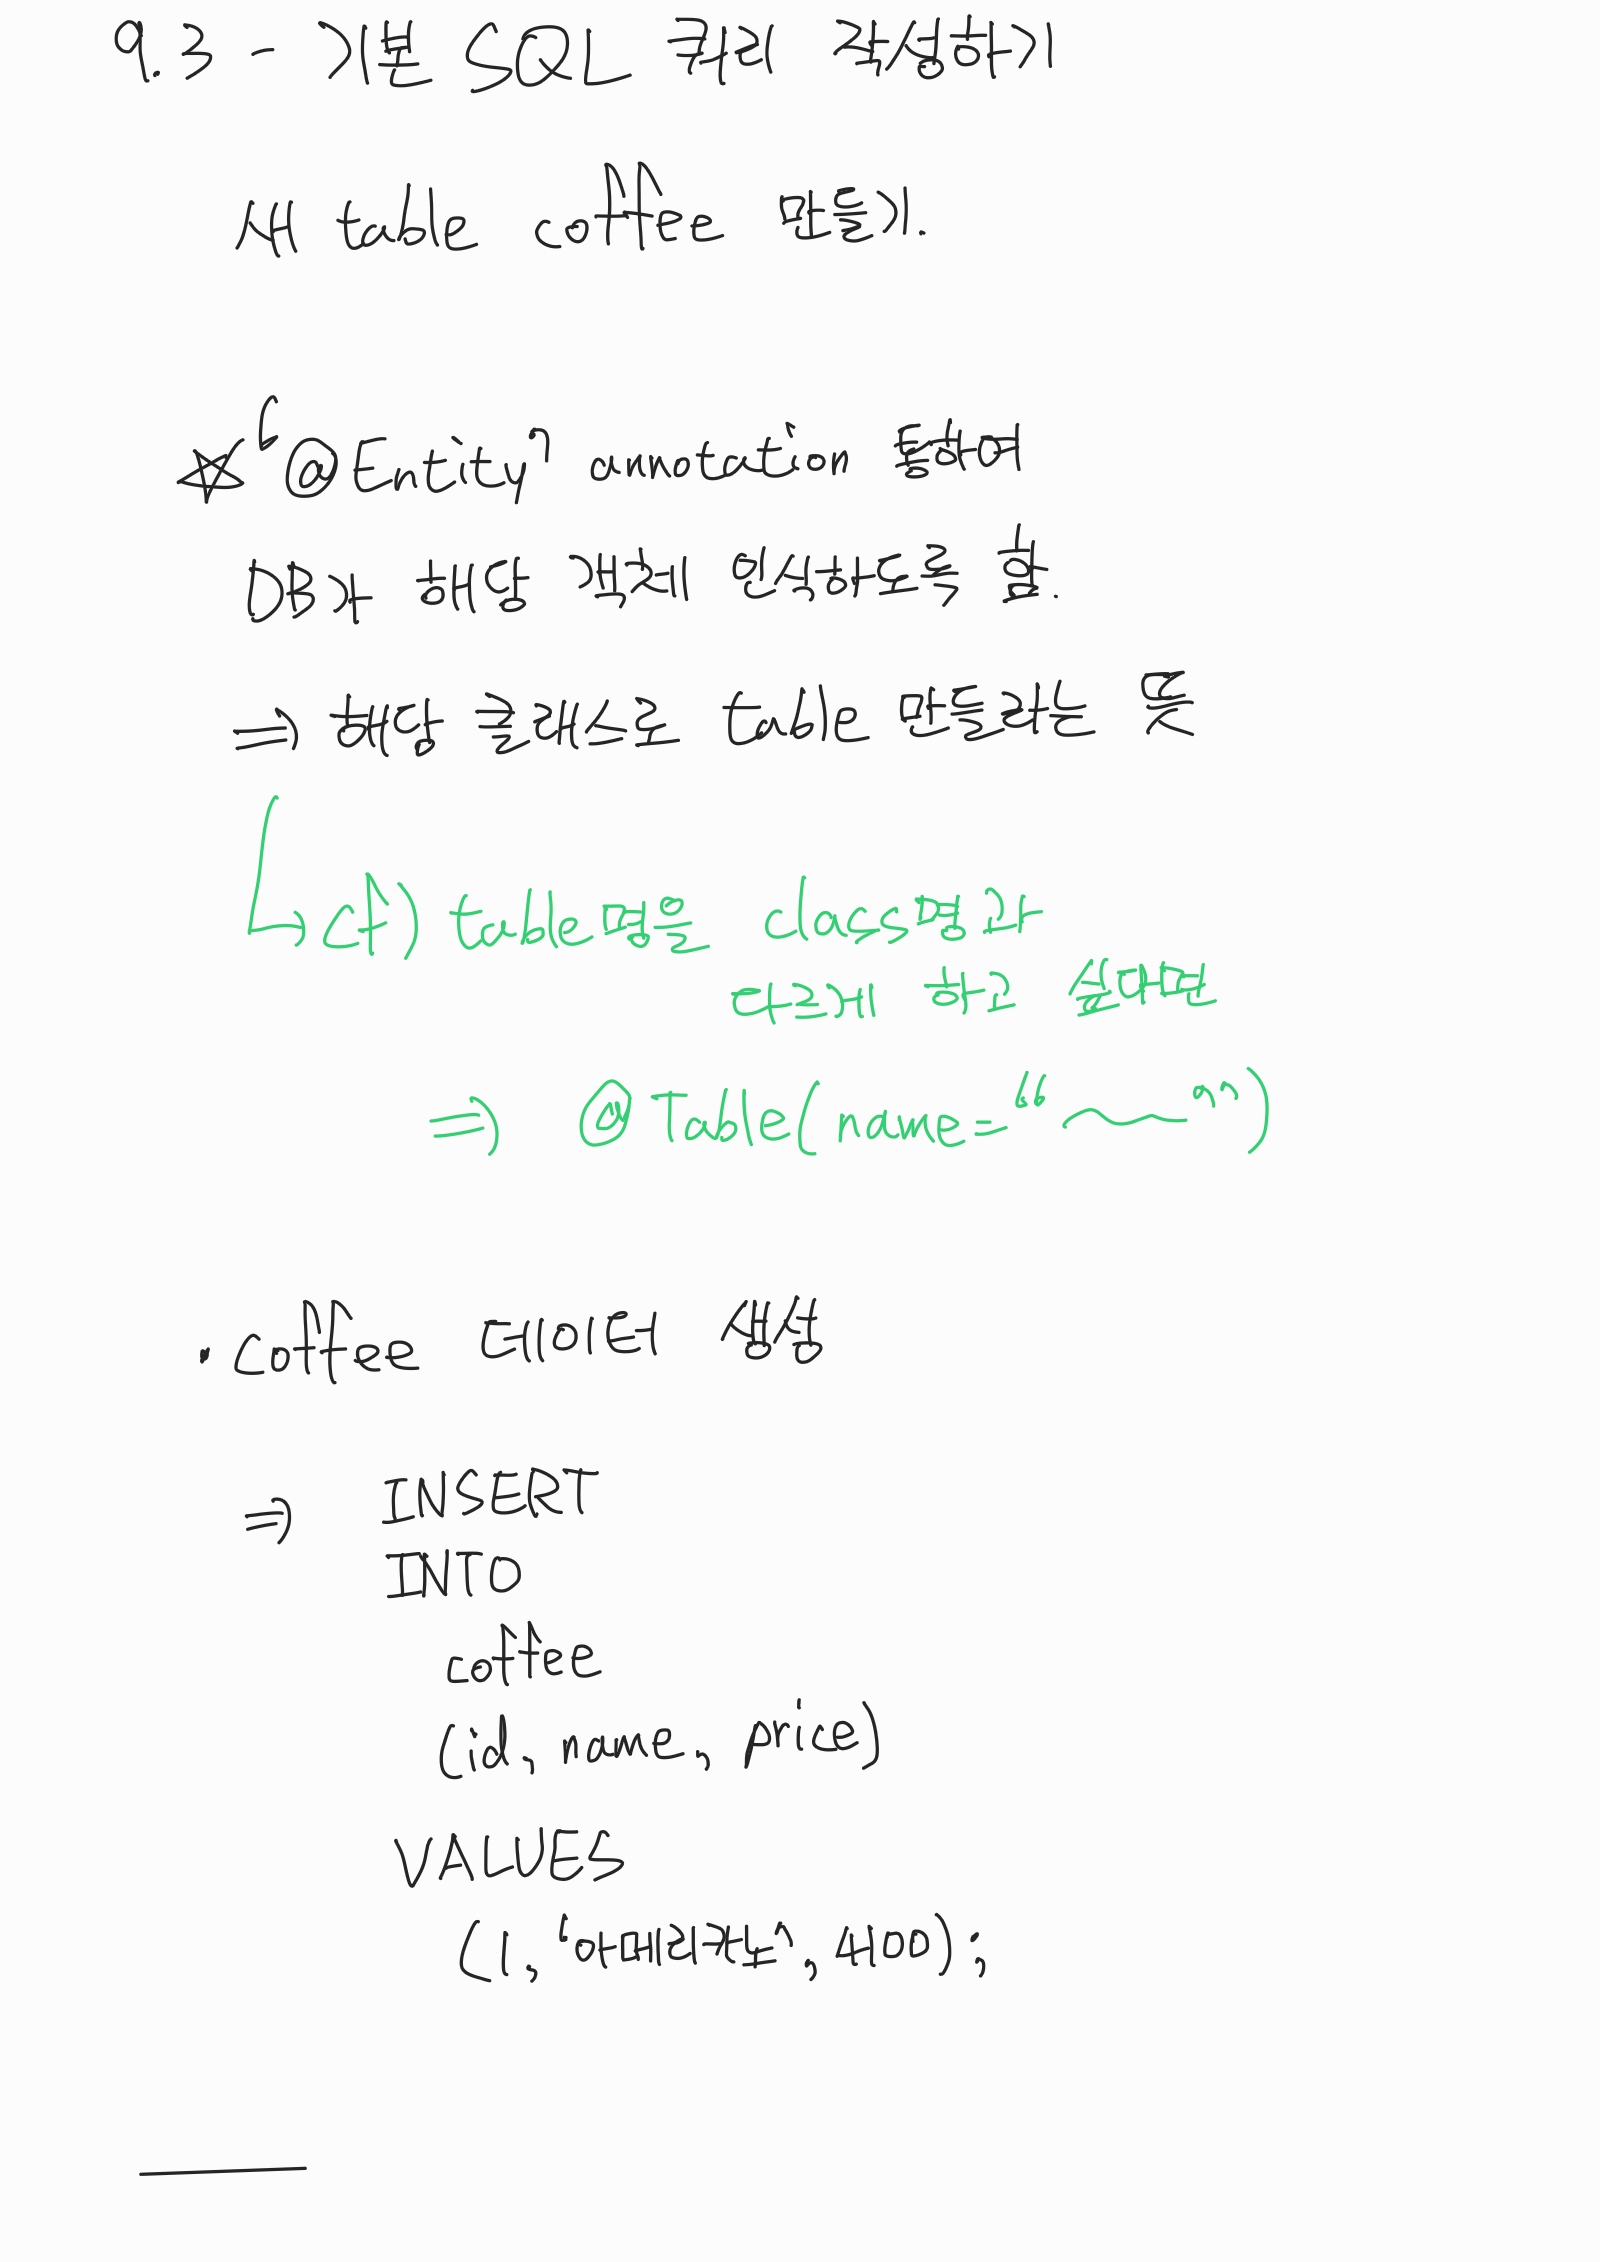 9.3 - 기본 SQL 쿼리 작성하기
새 table coffee 만들기.
☆ ‘@Entity’ annotation 통하여
DB가 해당 객체 인식하도록 함.
⇒ 해당 클래스로 table 만들라는 뜻
↳ cf) table명을 class명과
다르게 하고 싶다면
⇒ @Table(name="~")
· coffee 데이터 생성
⇒ INSERT
INTO
coffee
(id, name, price)
VALUES
(1, ‘아메리카노’, 4100);